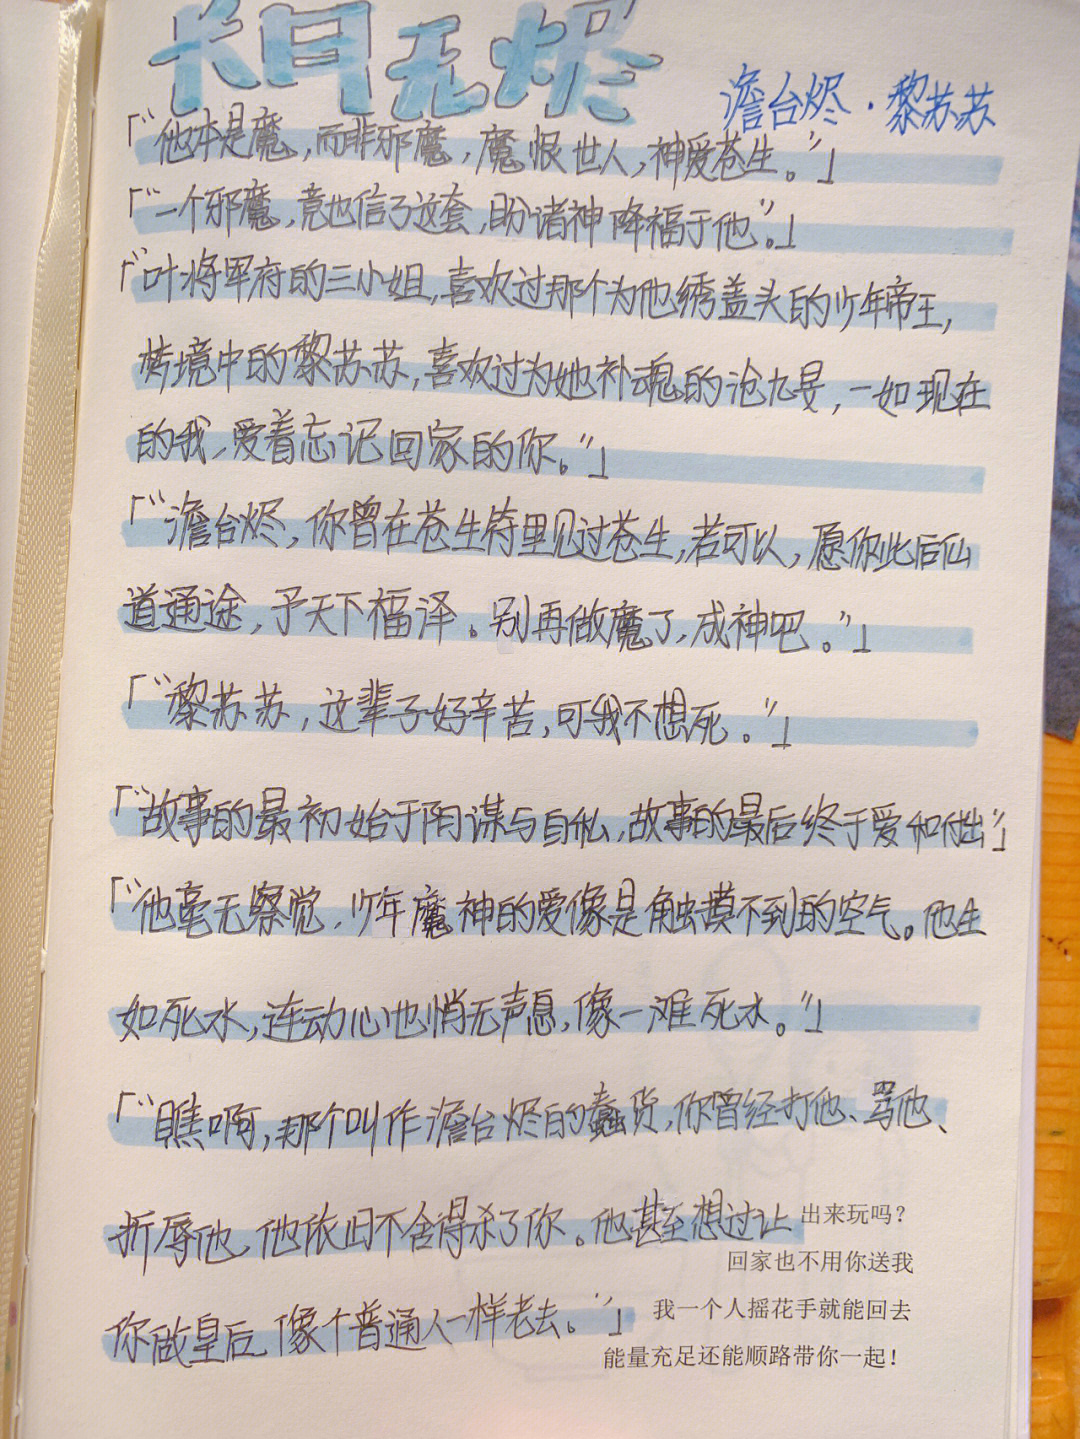 长月无烬
澹台烬·黎苏苏
「“他本是魔，而非邪魔，魔恨世人，神爱苍生。”」
「“一个邪魔，竟也信了这套，盼诸神降福于他”。」
「“叶将军府的三小姐，喜欢过那个为他绣盖头的少年帝王，
梦境中的黎苏苏，喜欢过为她补魂的沧九旻，一如现在
的我，爱着忘记回家的你。”」
「“澹台烬，你曾在苍生符里见过苍生，若可以，愿你此后仙
道通途，予天下福泽。别再做魔了，成神吧。”」
「“黎苏苏，这辈子好辛苦，可我不想死。”」
「“故事的最初始于阴谋与自私，故事的最后终于爱和他”」
「“他毫无察觉，少年魔神的爱像是触摸不到的空气。他生
如死水，连动心也悄无声息，像一滩死水。”」
「“瞧啊，那个叫作澹台烬的蠢货，你曾经打他、骂他、
折辱他，他依旧不舍得杀了你。他甚至想过让
你做皇后，像个普通人一样老去。”」
出来玩吗？
回家也不用你送我
我一个人摇花手就能回去
能量充足还能顺路带你一起！